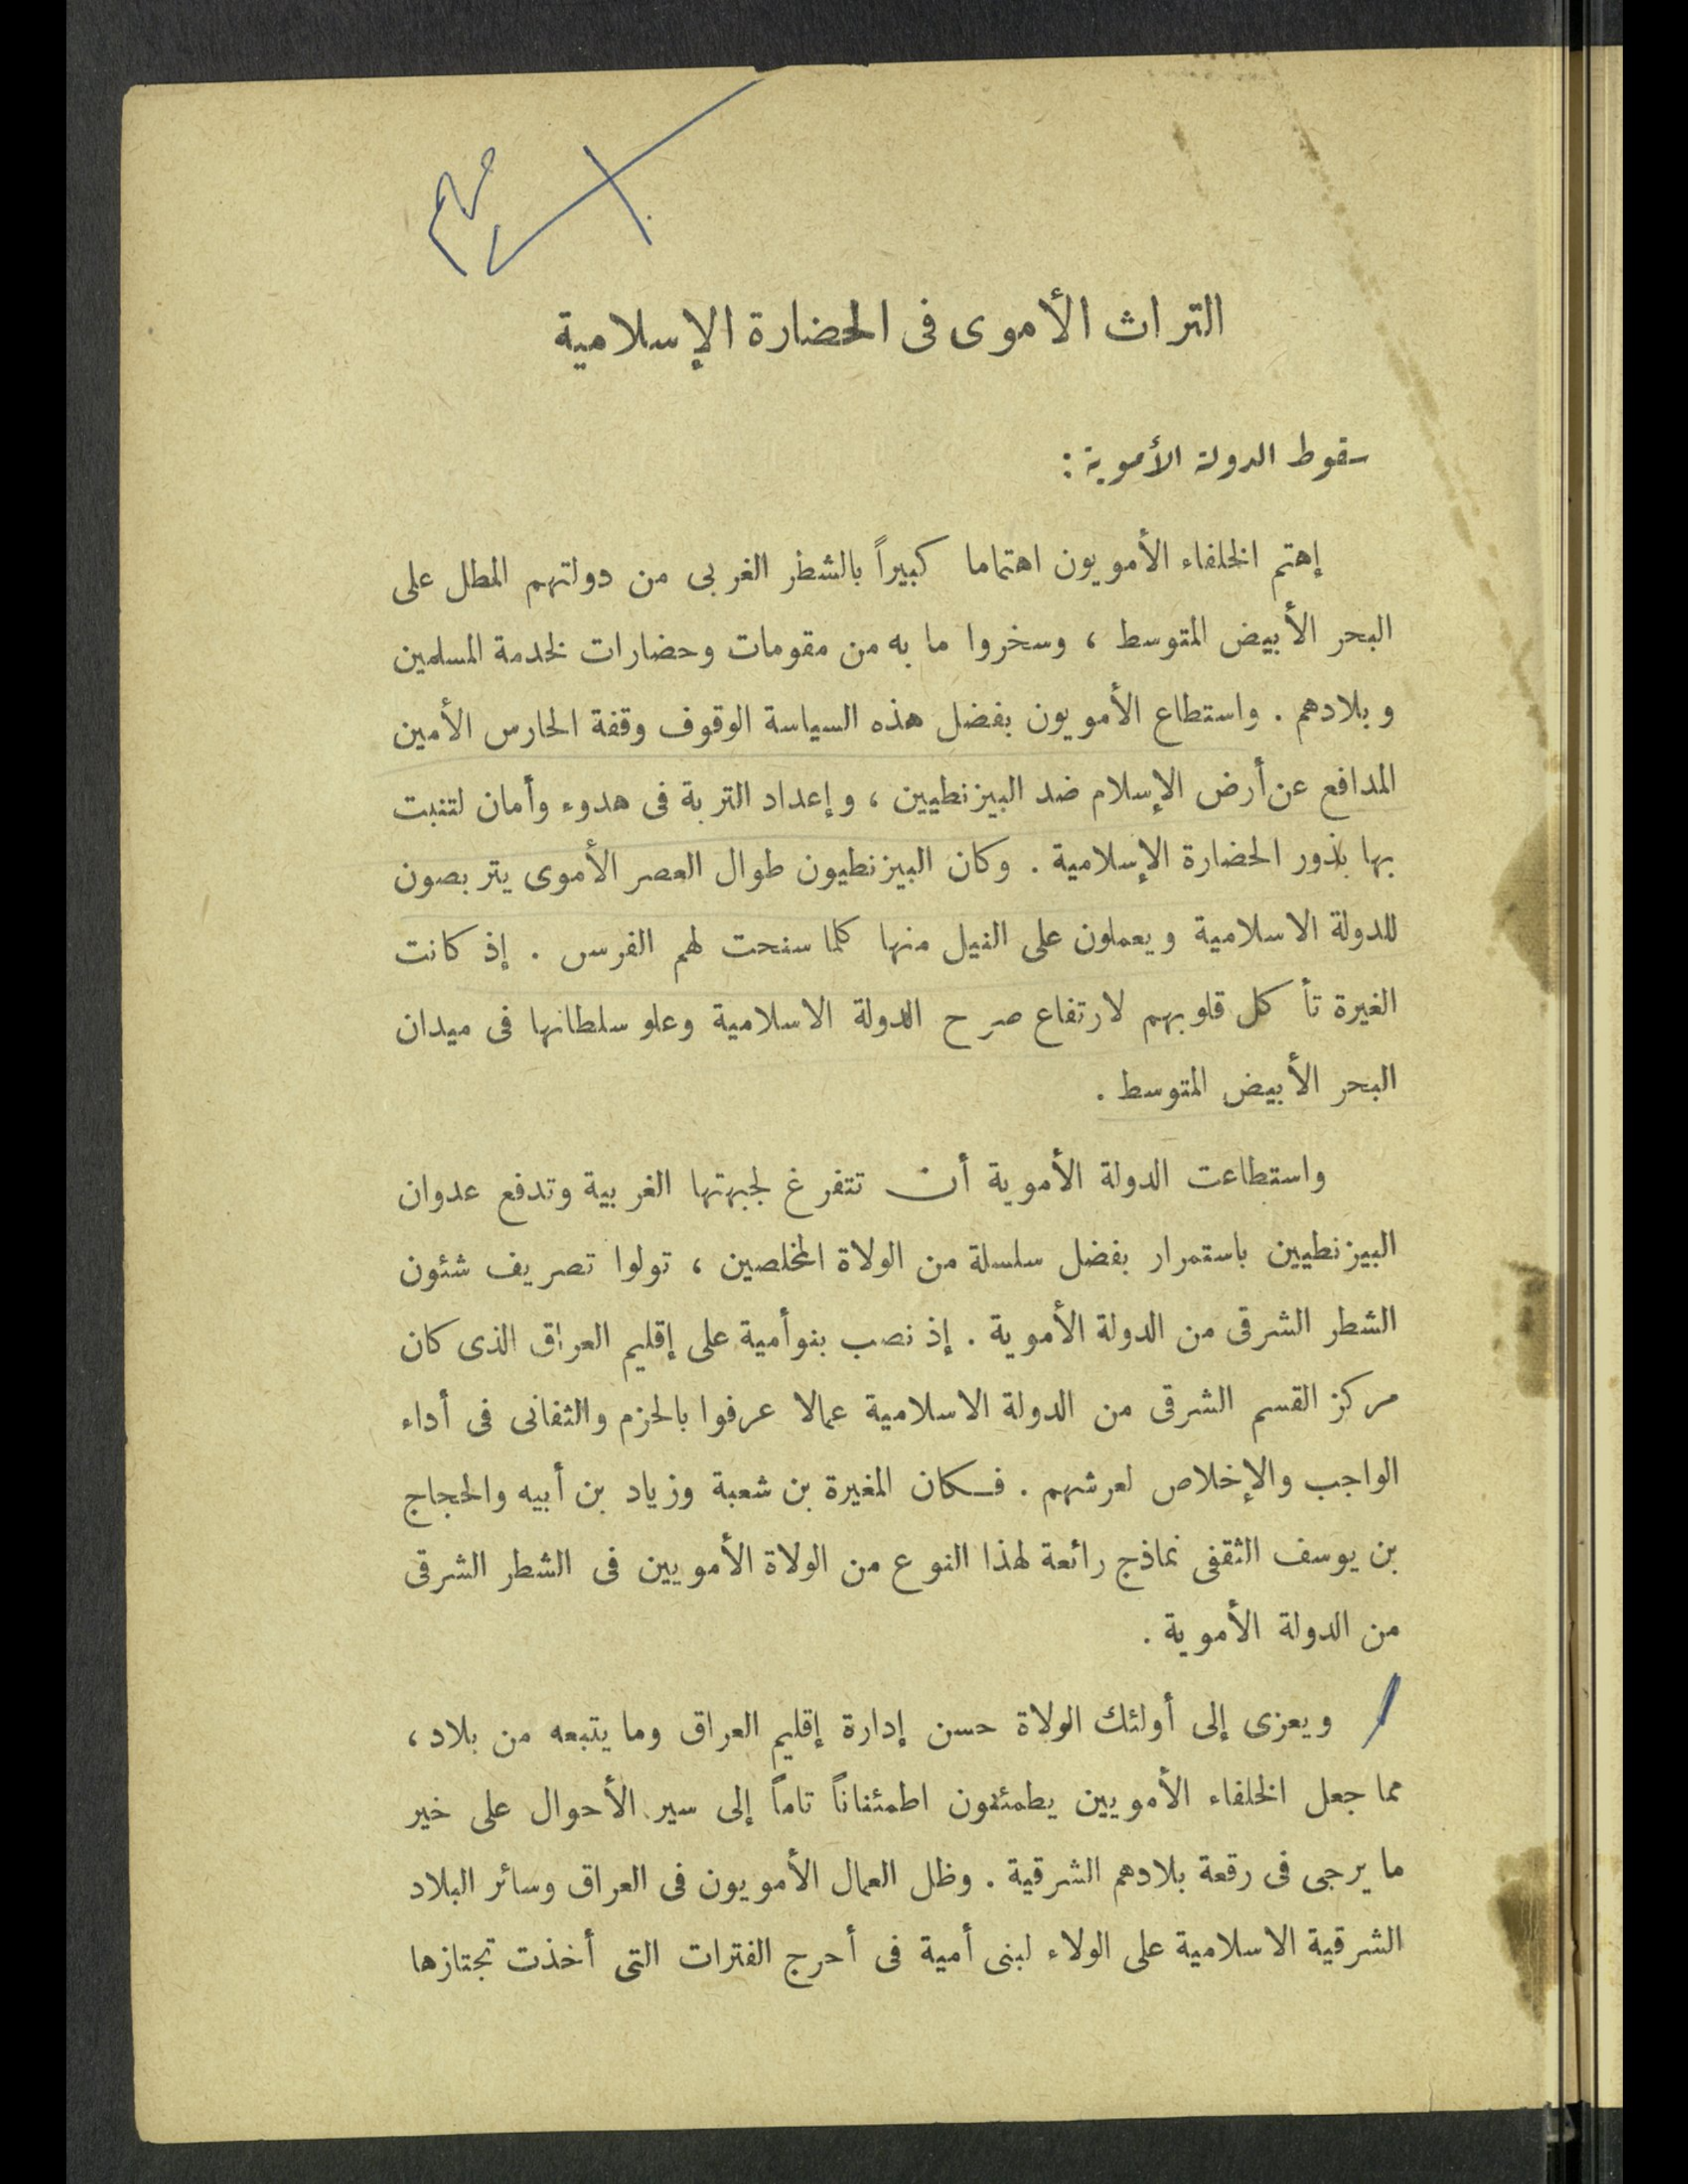 التراث الأموى فى الحضارة الإسلامية
سقوط الدولة الأموية :
إهتم الخلفاء الأمويون اهتماما كبيراً بالشطر الغربى من دولتهم المطل على
البحر الأبيض المتوسط ، وسخروا ما به من مقومات وحضارات لخدمة المسلمين
وبلادهم . واستطاع الأمويون بفضل هذه السياسة الوقوف وقفة الحارس الأمين
المدافع عن أرض الإسلام ضد البيزنطيين ، وإعداد التربة فى هدوء وأمان لتنبت
بها بذور الحضارة الإسلامية . وكان البيزنطيون طوال العصر الأموى يتربصون
للدولة الاسلامية ويعملون على النيل منها كلما سنحت لهم الفرس . إذ كانت
الغيرة تأكل قلوبهم لارتفاع صرح الدولة الاسلامية وعلو سلطانها فى ميدان
البحر الأبيض المتوسط .
واستطاعت الدولة الأموية أن تتفرغ لجبهتها الغربية وتدفع عدوان
البيزنطيين باستمرار بفضل سلسلة من الولاة المخلصين ، تولوا تصريف شئون
الشطر الشرقى من الدولة الأموية . إذ نصب بنو أمية على إقليم العراق الذى كان
مركز القسم الشرقى من الدولة الاسلامية عمالا عرفوا بالحزم والتفانى فى أداء
الواجب والإخلاص لعرشهم . فكان المغيرة بن شعبة وزياد بن أبيه والحجاج
بن يوسف الثقفى نماذج رائعة لهذا النوع من الولاة الأمويين فى الشطر الشرقى
من الدولة الأموية .
ويعزى إلى أولئك الولاة حسن إدارة إقليم العراق وما يتبعه من بلاد ،
مما جعل الخلفاء الأمويين يطمئنون اطمئناناً تاماً إلى سير الأحوال على خير
ما يرجى فى رقعة بلادهم الشرقية . وظل العمال الأمويون فى العراق وسائر البلاد
الشرقية الاسلامية على الولاء لبنى أمية فى أحرج الفترات التى أخذت تجتازها